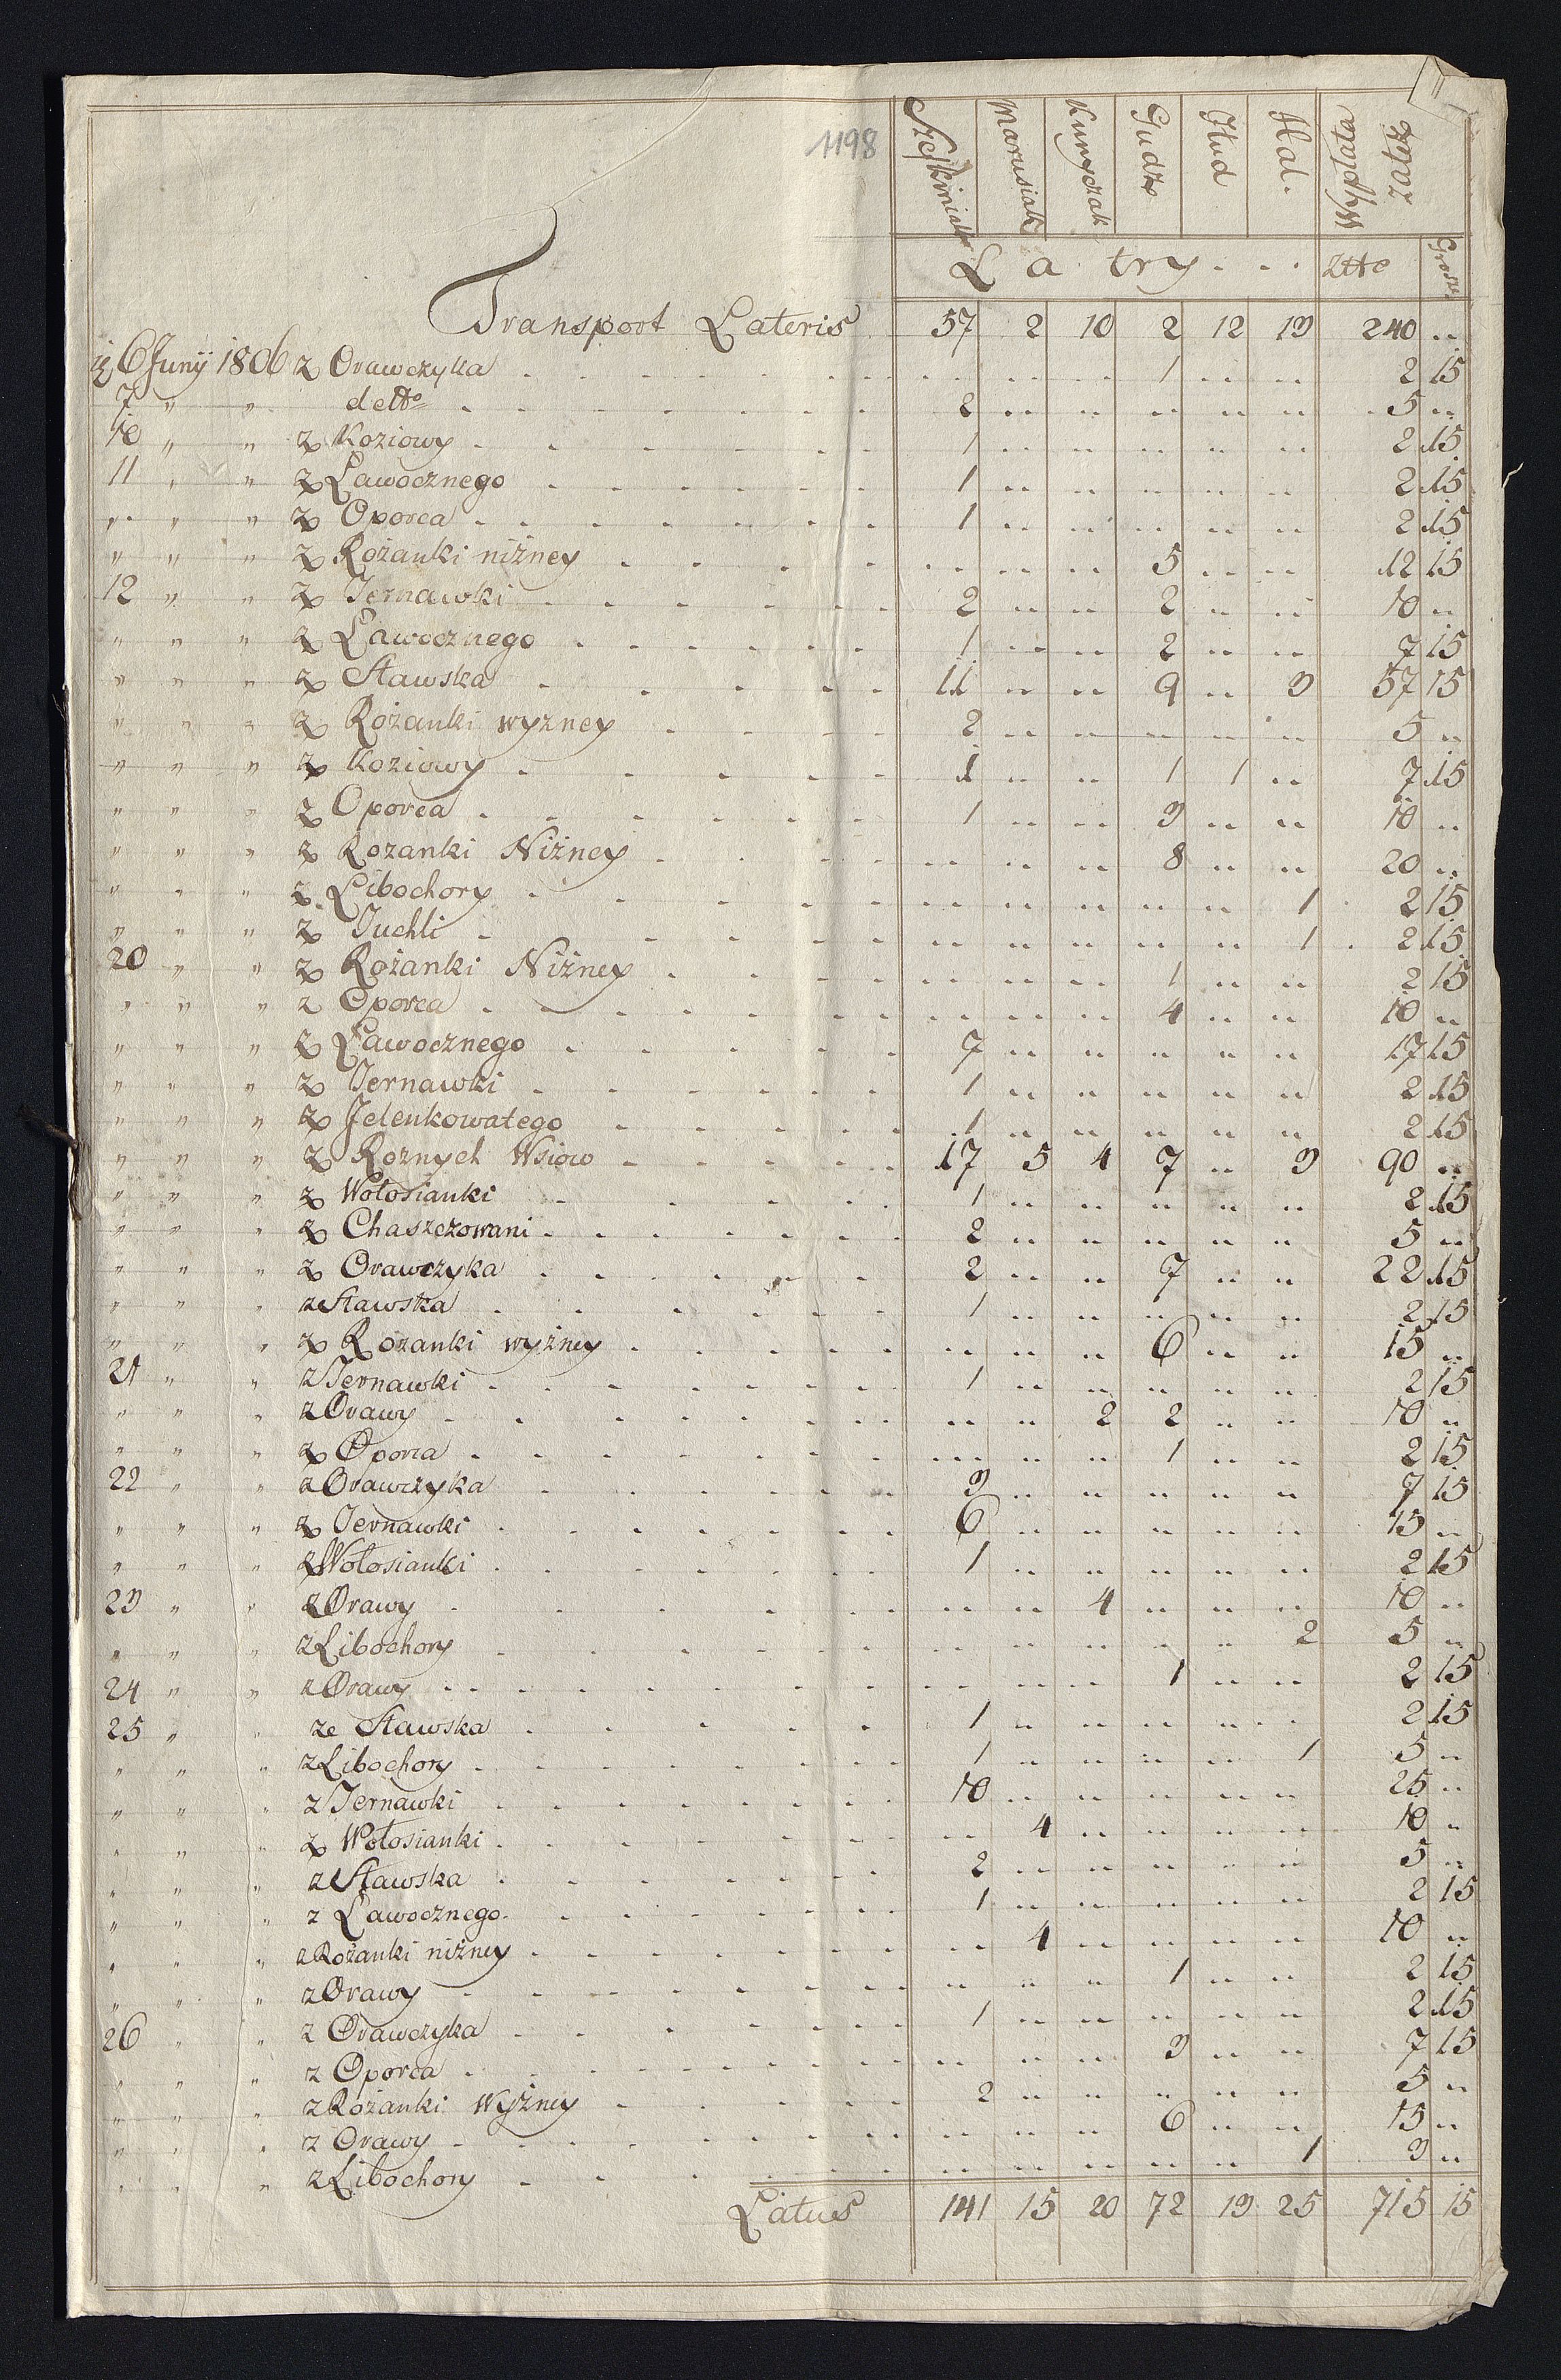 1198
Szeskiniak Marusiak Kunyczak Gudz Hud Hal. Wypłata zatęż
Latry . . . ztto Grosze
Transport Lateris 57 2 10 2 12 13 240 ..
6 Junÿ 1806 z Orawczyka 1 .. .. 2 15
7 " " detto 2 .. .. .. .. .. 5 ..
10 " " z Koziowy 1 .. .. .. .. .. 2 15
11 " " z Ławocznego 1 .. .. .. .. .. 2 15
" " " z Oporca 1 .. .. .. .. .. 2 15
" " " z Rożanki niżney .. .. .. 5 .. .. 12 15
12 " " z Ternawki 2 .. .. 2 .. .. 10 ..
" " " z Ławocznego 1 .. .. 2 .. .. 7 15
" " " z Sławska 11 .. .. 9 .. 3 57 15
" " " z Rożanki wyzney 2 .. .. .. .. .. 5 ..
" " " z Koziowy 1 .. .. 1 1 .. 7 15
" " " z Oporca 1 .. .. 3 .. .. 10 ..
" " " z Rozanki Niżney .. .. .. 8 .. .. 20 ..
" " " z Libochory .. .. .. .. .. 1 2 15
" " " z Tuchli .. .. .. .. .. 1 2 15
20 " " z Rożanki Niżney .. .. .. 1 .. .. 2 15
" " " z Oporca .. .. .. 4 .. .. 10 ..
" " " z Ławocznego 7 .. .. .. .. .. 17 15
" " " z Ternawki 1 .. .. .. .. .. 2 15
" " " z Jelenkowatego 1 .. .. .. .. .. 2 15
" " " z Roznych Wsiow 17 5 4 7 .. 3 90 ..
" " " z Wołosianki 1 .. .. .. .. .. 2 15
" " " z Chaszczowani 2 .. .. .. .. .. 5 ..
" " " z Orawczyka 2 .. .. 7 .. .. 22 15
" " " ze Sławska 1 .. .. .. .. .. 2 15
" " " z Rozanki wyżney .. .. .. 6 .. .. 15 ..
21 " " z Ternawki 1 .. .. .. .. .. 2 15
" " " z Orawy .. .. 2 2 .. .. 10 ..
" " " z Oporca .. .. .. 1 .. .. 2 15
22 " " z Orawczyka 3 .. .. .. .. .. 7 15
" " " z Ternawki 6 .. .. .. .. .. 15 ..
" " " z Wołosianki 1 .. .. .. .. .. 2 15
23 " " z Orawy .. .. 4 .. .. .. 10 ..
" " " z Libochory .. .. .. .. .. 2 5 ..
24 " " z Orawy .. .. .. 1 .. .. 2 15
25 " " ze Sławska 1 .. .. .. .. .. 2 15
" " " z Libochory 1 .. .. .. .. 1 5 ..
" " " z Ternawki 10 .. .. .. .. .. 25 ..
" " " z Wołosianki .. 4 .. .. .. .. 10 ..
" " " z Sławska 2 .. .. .. .. .. 5 ..
" " " z Ławocznego 1 .. .. .. .. .. 2 15
" " " z Rożanki niżney .. 4 .. .. .. .. 10 ..
" " " z Orawy .. .. .. 1 .. .. 2 15
26 " " z Orawczyka 1 .. .. .. .. .. 2 15
" " " z Oporca .. .. .. 3 .. .. 7 15
" " " z Rożanki Wyżney 2 .. .. .. .. .. 5 ..
" " " z Orawy .. .. .. 6 .. .. 15 ..
" " " z Libochory .. .. .. .. .. 1 3 ..
Latus 141 15 20 72 13 25 715 15